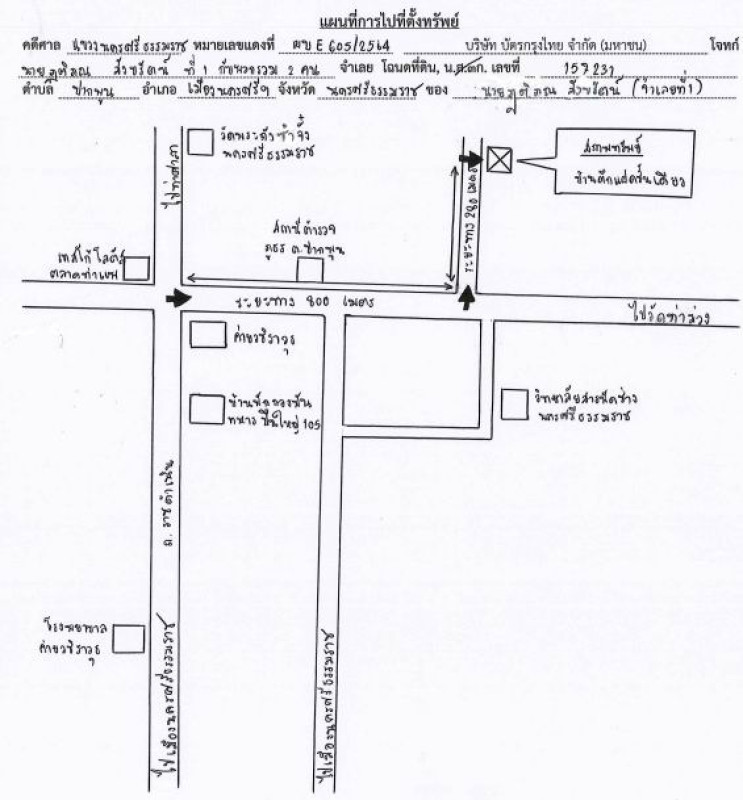 แผนที่การไปที่ตั้งทรัพย์
คดีศาล แขวงนครศรีธรรมราช หมายเลขแดงที่ ผบ E 605/2564 บริษัท บัตรกรุงไทย จำกัด (มหาชน) โจทก์
นาย ที่ 1 กับพวกรวม 2 คน จำเลย โฉนดที่ดิน, น.ส.๓ก. เลขที่ 157231
ตำบล ปากพูน อำเภอ เมืองนครศรีฯ จังหวัด นครศรีธรรมราช ของ นาย (จำเลยที่1)
ไปท่าศาลา
วัดพระ
นครศรีธรรมราช
สภาพทรัพย์
บ้านตึกแถวชั้นเดียว
ระยะทาง 280 เมตร
สถานีตำรวจ
ภูธร ต.ปากพูน
เทสโก้ โลตัส
ตลาดท่าแพ
ระยะทาง 800 เมตร
ไปวัดท่าม่วง
ค่ายวชิราวุธ
บ้านพักกองพัน
ทหาร ปืนใหญ่ 105
วิทยาลัยสารพัดช่าง
นครศรีธรรมราช
ถ. ราชดำเนิน
โรงพยาบาล
ค่ายวชิราวุธ
ไปเมืองนครศรีธรรมราช
ไปเมืองนครศรีธรรมราช